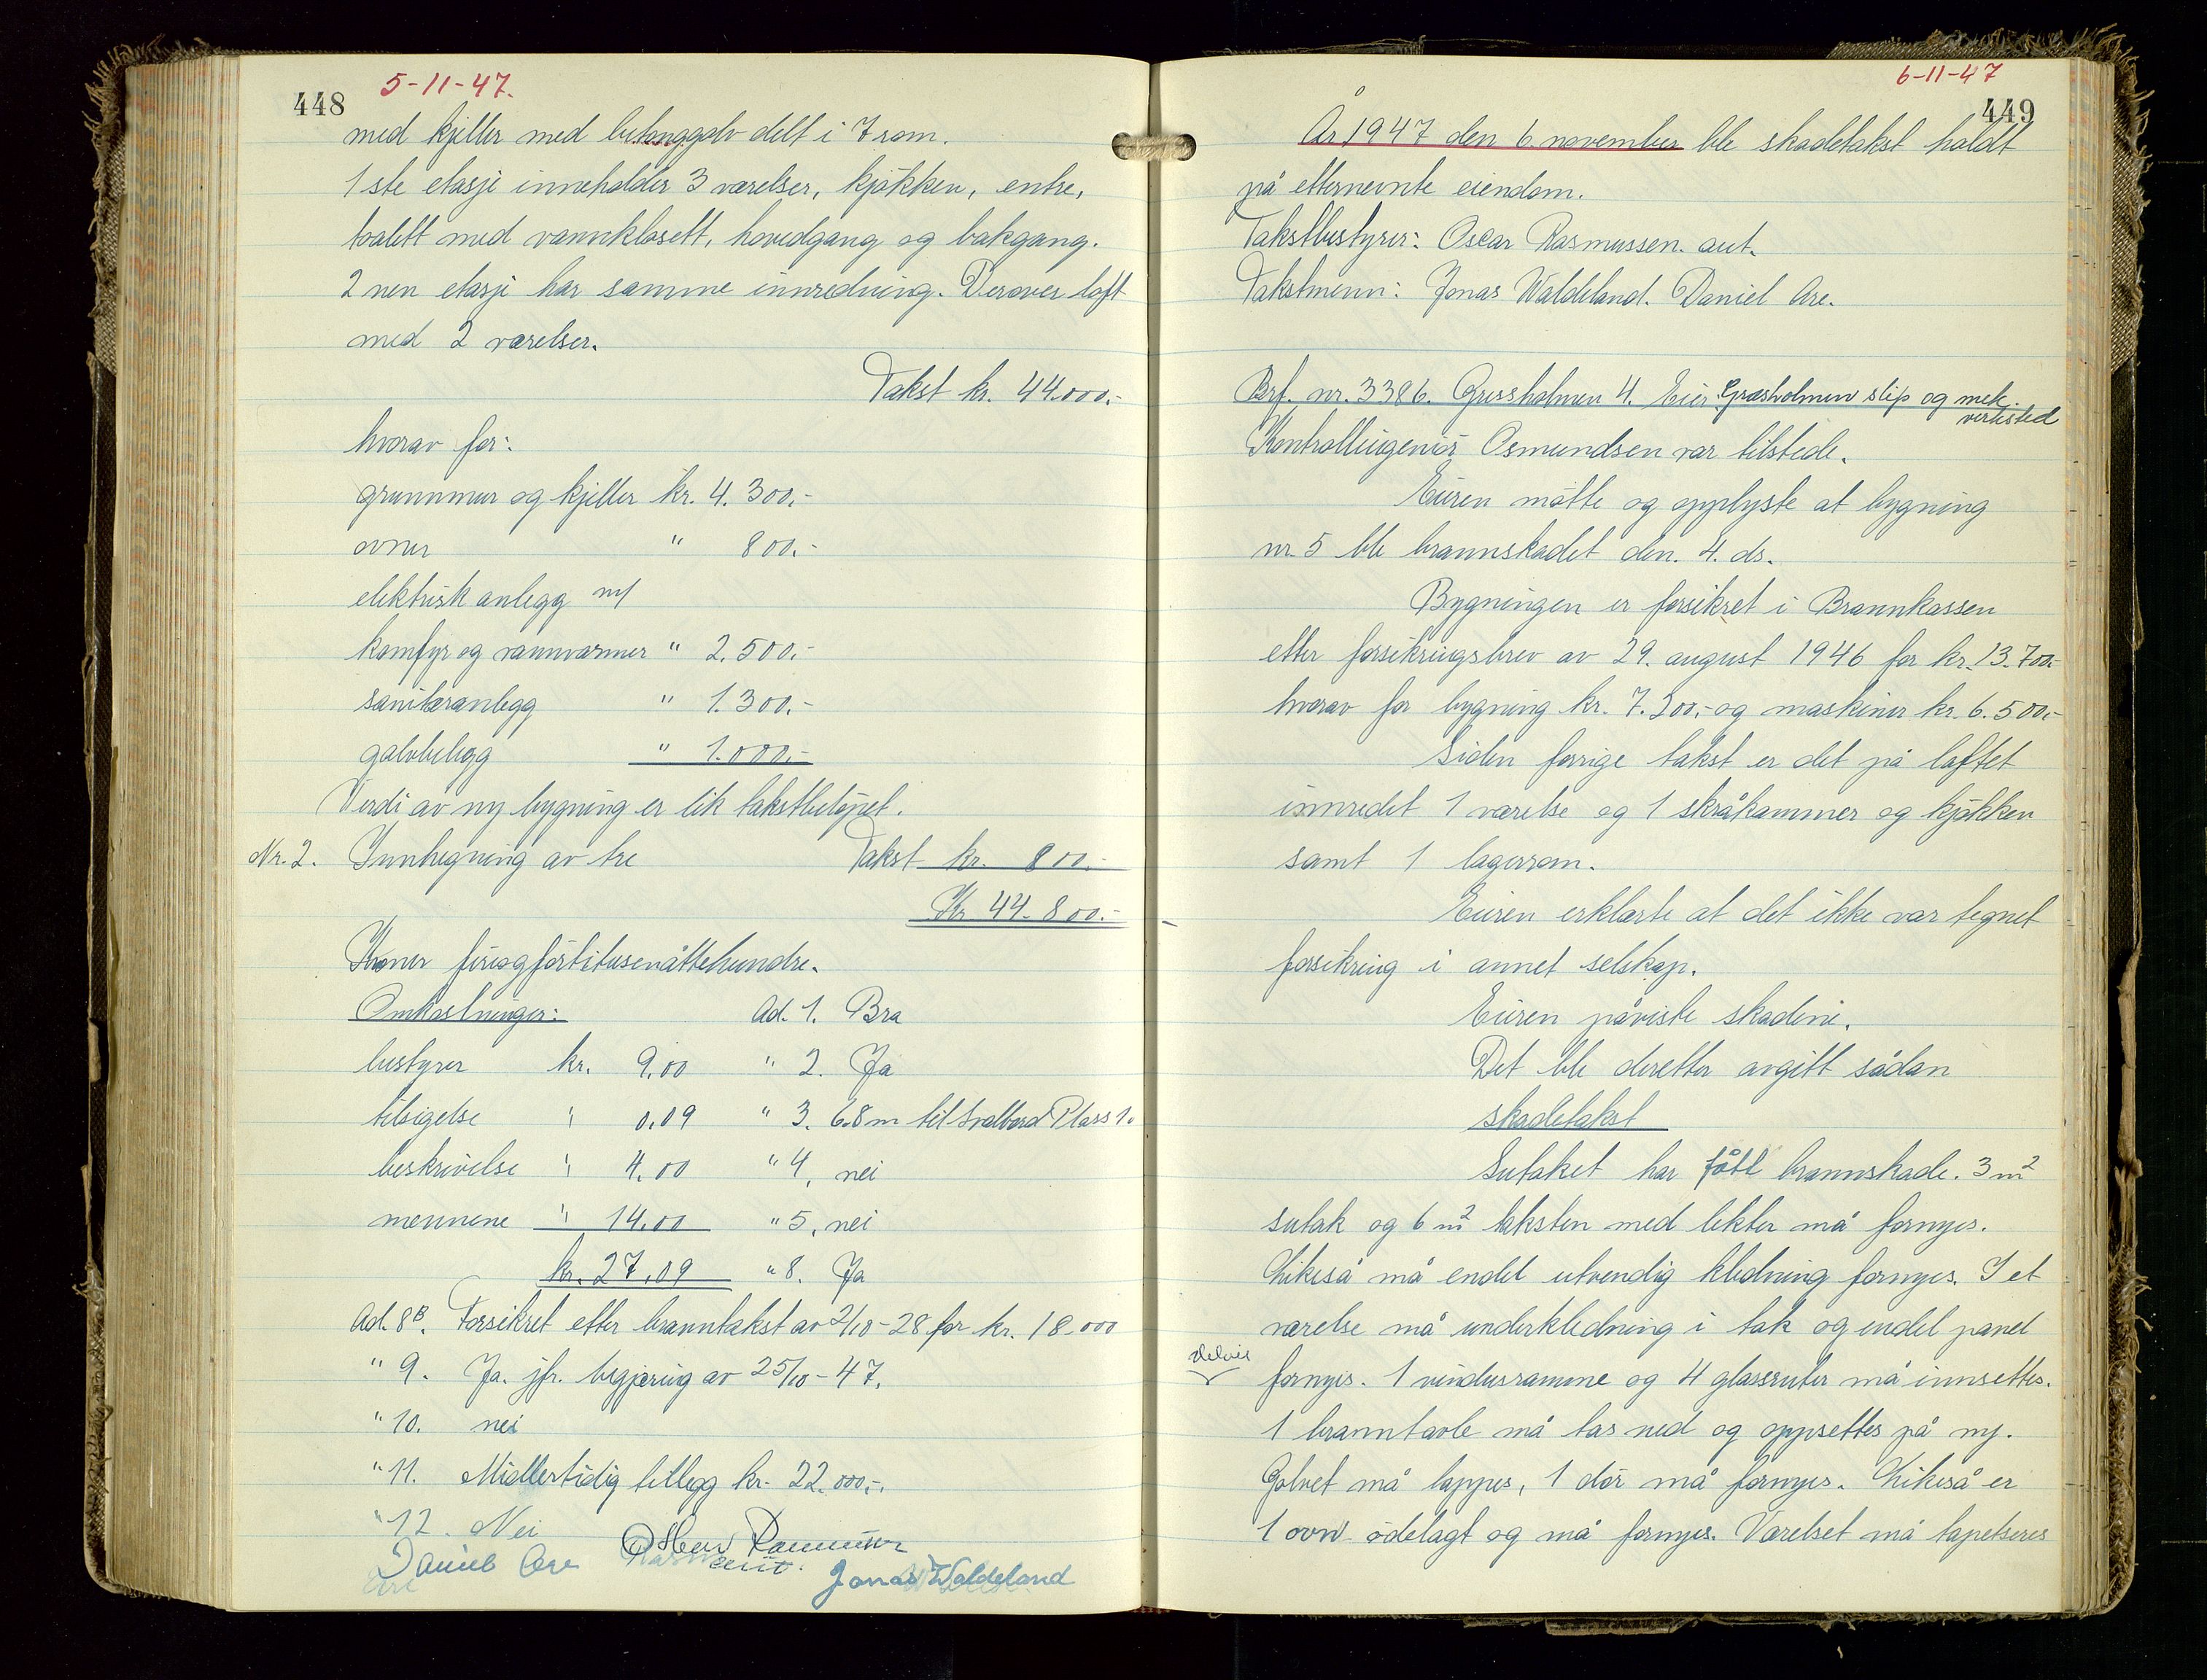 448
5-11-47.
med kjeller med betonggolv delt i 7 rom.
1ste etasje inneholder 3 værelser, kjøkken, entre,
toalett med vannklosett, hovedgang og bakgang.
2nen etasje har samme innredning. Derover loft
med 2 værelser.
Takst kr. 44.000.-
hvorav for:
grunnmur og kjeller kr. 4.300.-
ovner " 800.-
elektrisk anlegg m/
komfyr og vannvarmer " 2.500.-
sanitæranlegg " 1.300.-
golvbelegg " 1.000.-
Verdi av ny bygning er lik takstbeløpet.
Nr. 2. Innhegning av tre Takst kr. 800.-
Kr 44.800.-
Kroner firiogførtitusenåttehundre.
Omkostninger: Ad. 1. Bra
bestyrer kr. 9.00 " 2. Ja
tilsigelse " 0.09 " 3. 68 m til Svalbard Plass 1.
beskrivelse " 4.00 " 4. nei
mennene " 14.00 " 5. nei
kr. 27.09 " 8. Ja
Ad. 8B. Forsikret etter branntakst av 2/10-28 for kr. 18.000
" 9. Ja. jfr. begjæring av 25/10-47.
" 10. nei
" 11. Midlertidig tillegg kr. 22.000,-.
" 12. Nei
Oskar Rasmussen
Daniel Are aut. Jonas Waldeland
6-11-47
449
År 1947 den 6. november ble skadetakst holdt
på etternevnte eiendom.
Takstbestyrer: Oscar Rasmussen. aut.
Takstmenn: Jonas Waldeland. Daniel Are.
Brf. nr. 3386. Gressholmen 4. Eier Græsholmen slip og mek.
verksted
Kontrollingeniør Osmundsen var tilstede.
Eieren møtte og opplyste at bygning
nr. 5 ble brannskadet den. 4. ds.
Bygningen er forsikret i Brannkassen
etter forsikringsbrev av 29. august 1946 for kr. 13.700.-
hvorav for bygning kr. 7.200,- og maskiner kr. 6.500.-
Siden forrige takst er det på loftet
innredet 1 værelse og 1 skråkammer og kjøkken
samt 1 lagerrom.
Eieren erklærte at det ikke var tegnet
forsikring i annet selskap.
Eieren påviste skadene.
Det ble deretter avgitt sådan
skadetakst
Sutaket har fått brannskade. 3 m2
sutak og 6 m2 taksten med lekter må fornyes.
Likeså må endel utvendig kledning fornyes. I et
værelse må underkledning i tak og endel panel
delvis
fornyes. 1 vindusramme og 4 glassruter må innsettes.
1 branntavle må tas ned og oppsettes på ny.
Golvet må lappes, 1 dør må fornyes. Likeså er
1 ovn ødelagt og må fornyes. Værelset må tapetseres